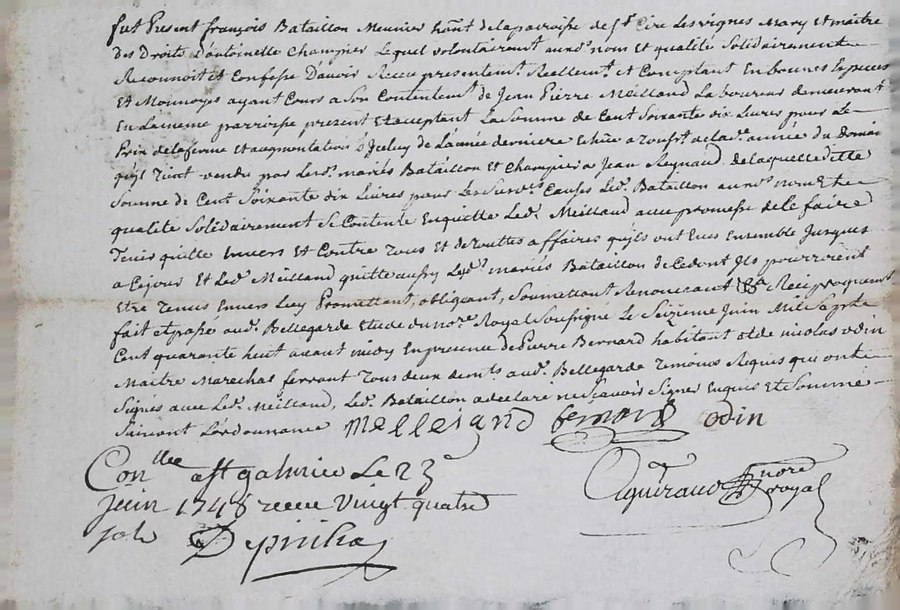 fut Present françois Bataillon Meunier hânt de la parroisse de St Cire Les vignes Mary et maitre
des Droits D'antoinette Champier Lequel volontairemt aux ds nom et qualité Solidairement
Reconnoit et Confesse D'avoir Receu presentemt Reellemt et Comptant En bonnes Especes
Et Monnoyes ayant Cours a Son Contentemt de Jean Pierre Meilland Laboureur demeurant
En La meme parroisse present et acceptant La Somme de Cent Soixante dix Livres pour Le
Prix de la ferme et augmentations de L'année derniere Echue a de lad. année du
qu'il tient vendu par Les ds mariés Bataillon Et Champier a Jean Reynaud de laquelle ditte
Somme de Cent Soixante dix Livres pour Les Susdes Causes Led. Bataillon aux ds nom Et
qualité Solidairement Se Contente En quitte Led. Meilland avec promesse de Le faire
Tenir quitte Envers Et Contre Tous Et de touttes affaires qu'ils ont Eues Ensemble Jusques
a Cejour Et Led. Meilland quitte aussy Les ds mariés Bataillon de Ce dont Ils pourroient
Etre Tenus Envers Luy Promettant, obligeant, Soumettant Renonceant Reciproquement
fait et passé aud. Bellegarde Etude du nore Royal Soussigné Le Seizieme Juin Mil Sept
Cent quarante huit avant midy En presence de Pierre Bernard habitant et de nicolas odin
Maitre Marechal ferrant Tous deux demts aud. Bellegarde Temoins Requis qui ont
Signés avec Led. Meilland, Led. Bataillon a declaré ne Scavoir Signer Enquis Et Sommé
Suivant L'ordonnance Melleiand Bernard odin
Conllee a St galmier Le 23
juin 1748 receu vingt quatre
sols
Aguiraud nore royal